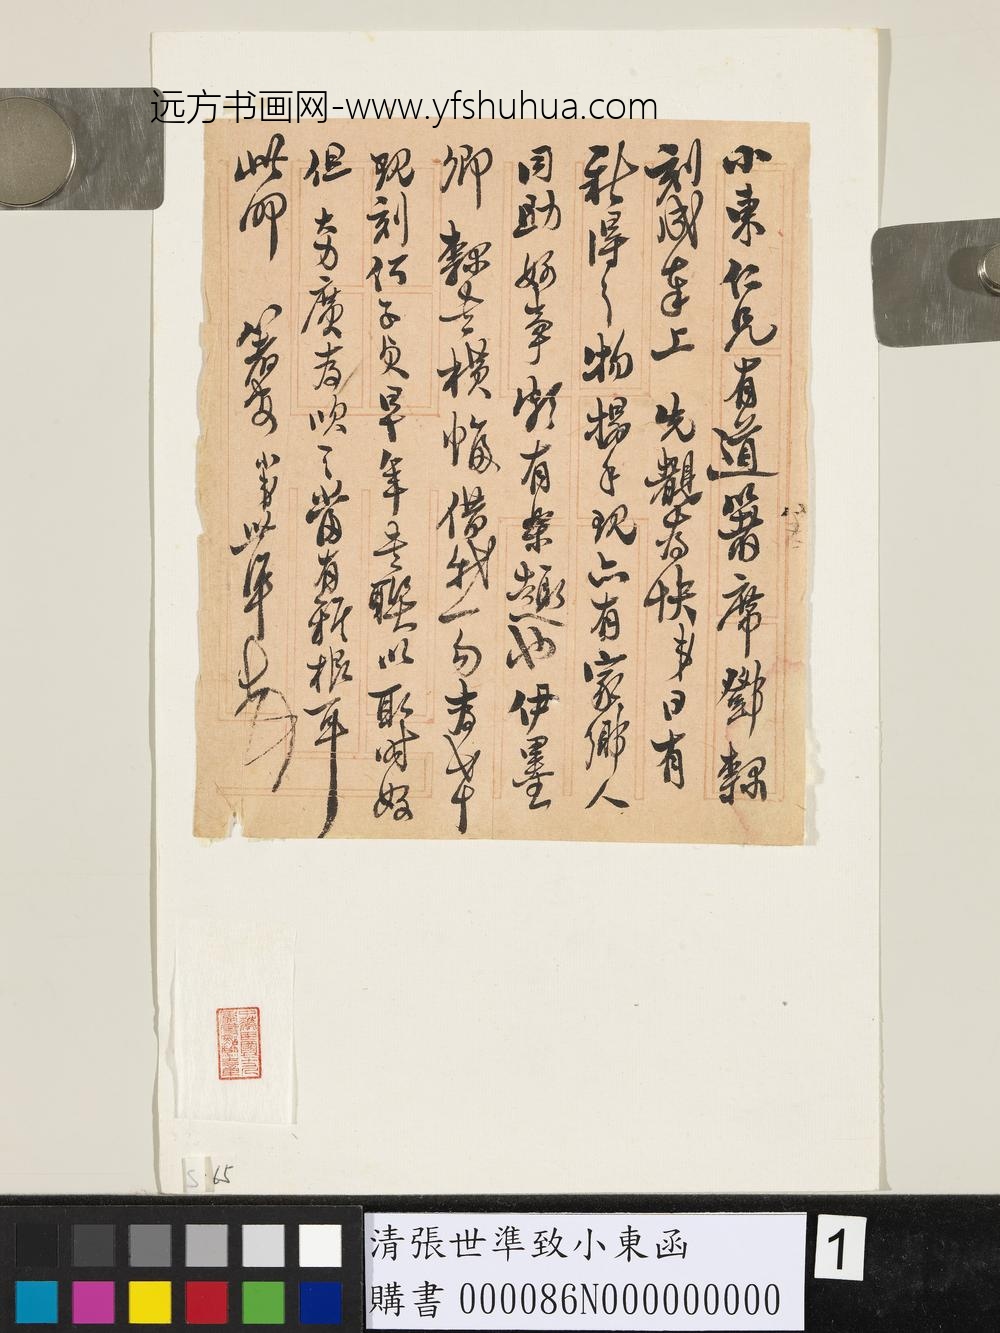 远方书画网-www.yfshuhua.com
小東仁兄有道箸席鄧隸
刻成奉上先覩為快耳日有
新得之物揚手現亦有家鄉人
同助好事頗有樂趣也伊墨
卿隸書橫幅借我一勾青成十
現刻何子貞早年書聯以取時好
但 大力廣為吹之當有雅根耳
此即箸安 小弟世準
S·65
清張世準致小東函
購書 000086N000000000
1